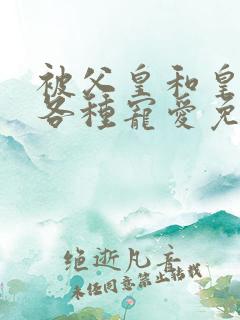 被父皇和皇
各種寵愛免
绝逝凡音
未经同意禁止转载